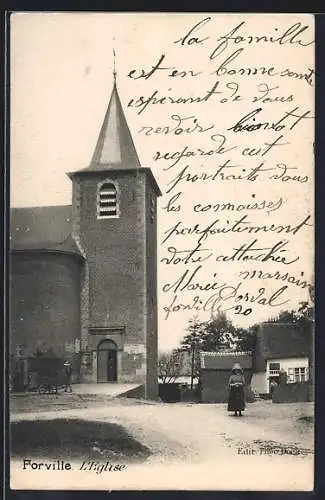 la famille
est en bonne sante
espérant de vous
revoir bientot
regarde cest
portraits vous
les connaisses
parfaitement
votre attachee
Marie marsain
Forville
20
Edit.
Forville. L'Eglise